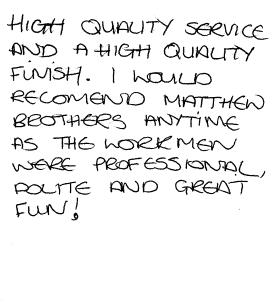 HIGH QUALITY SERVICE
AND A HIGH QUALITY
FINISH. I WOULD
RECOMEND MATTHEW
BROTHERS ANYTIME
AS THE WORKMEN
WERE PROFESSIONAL,
POLITE AND GREAT
FUN!